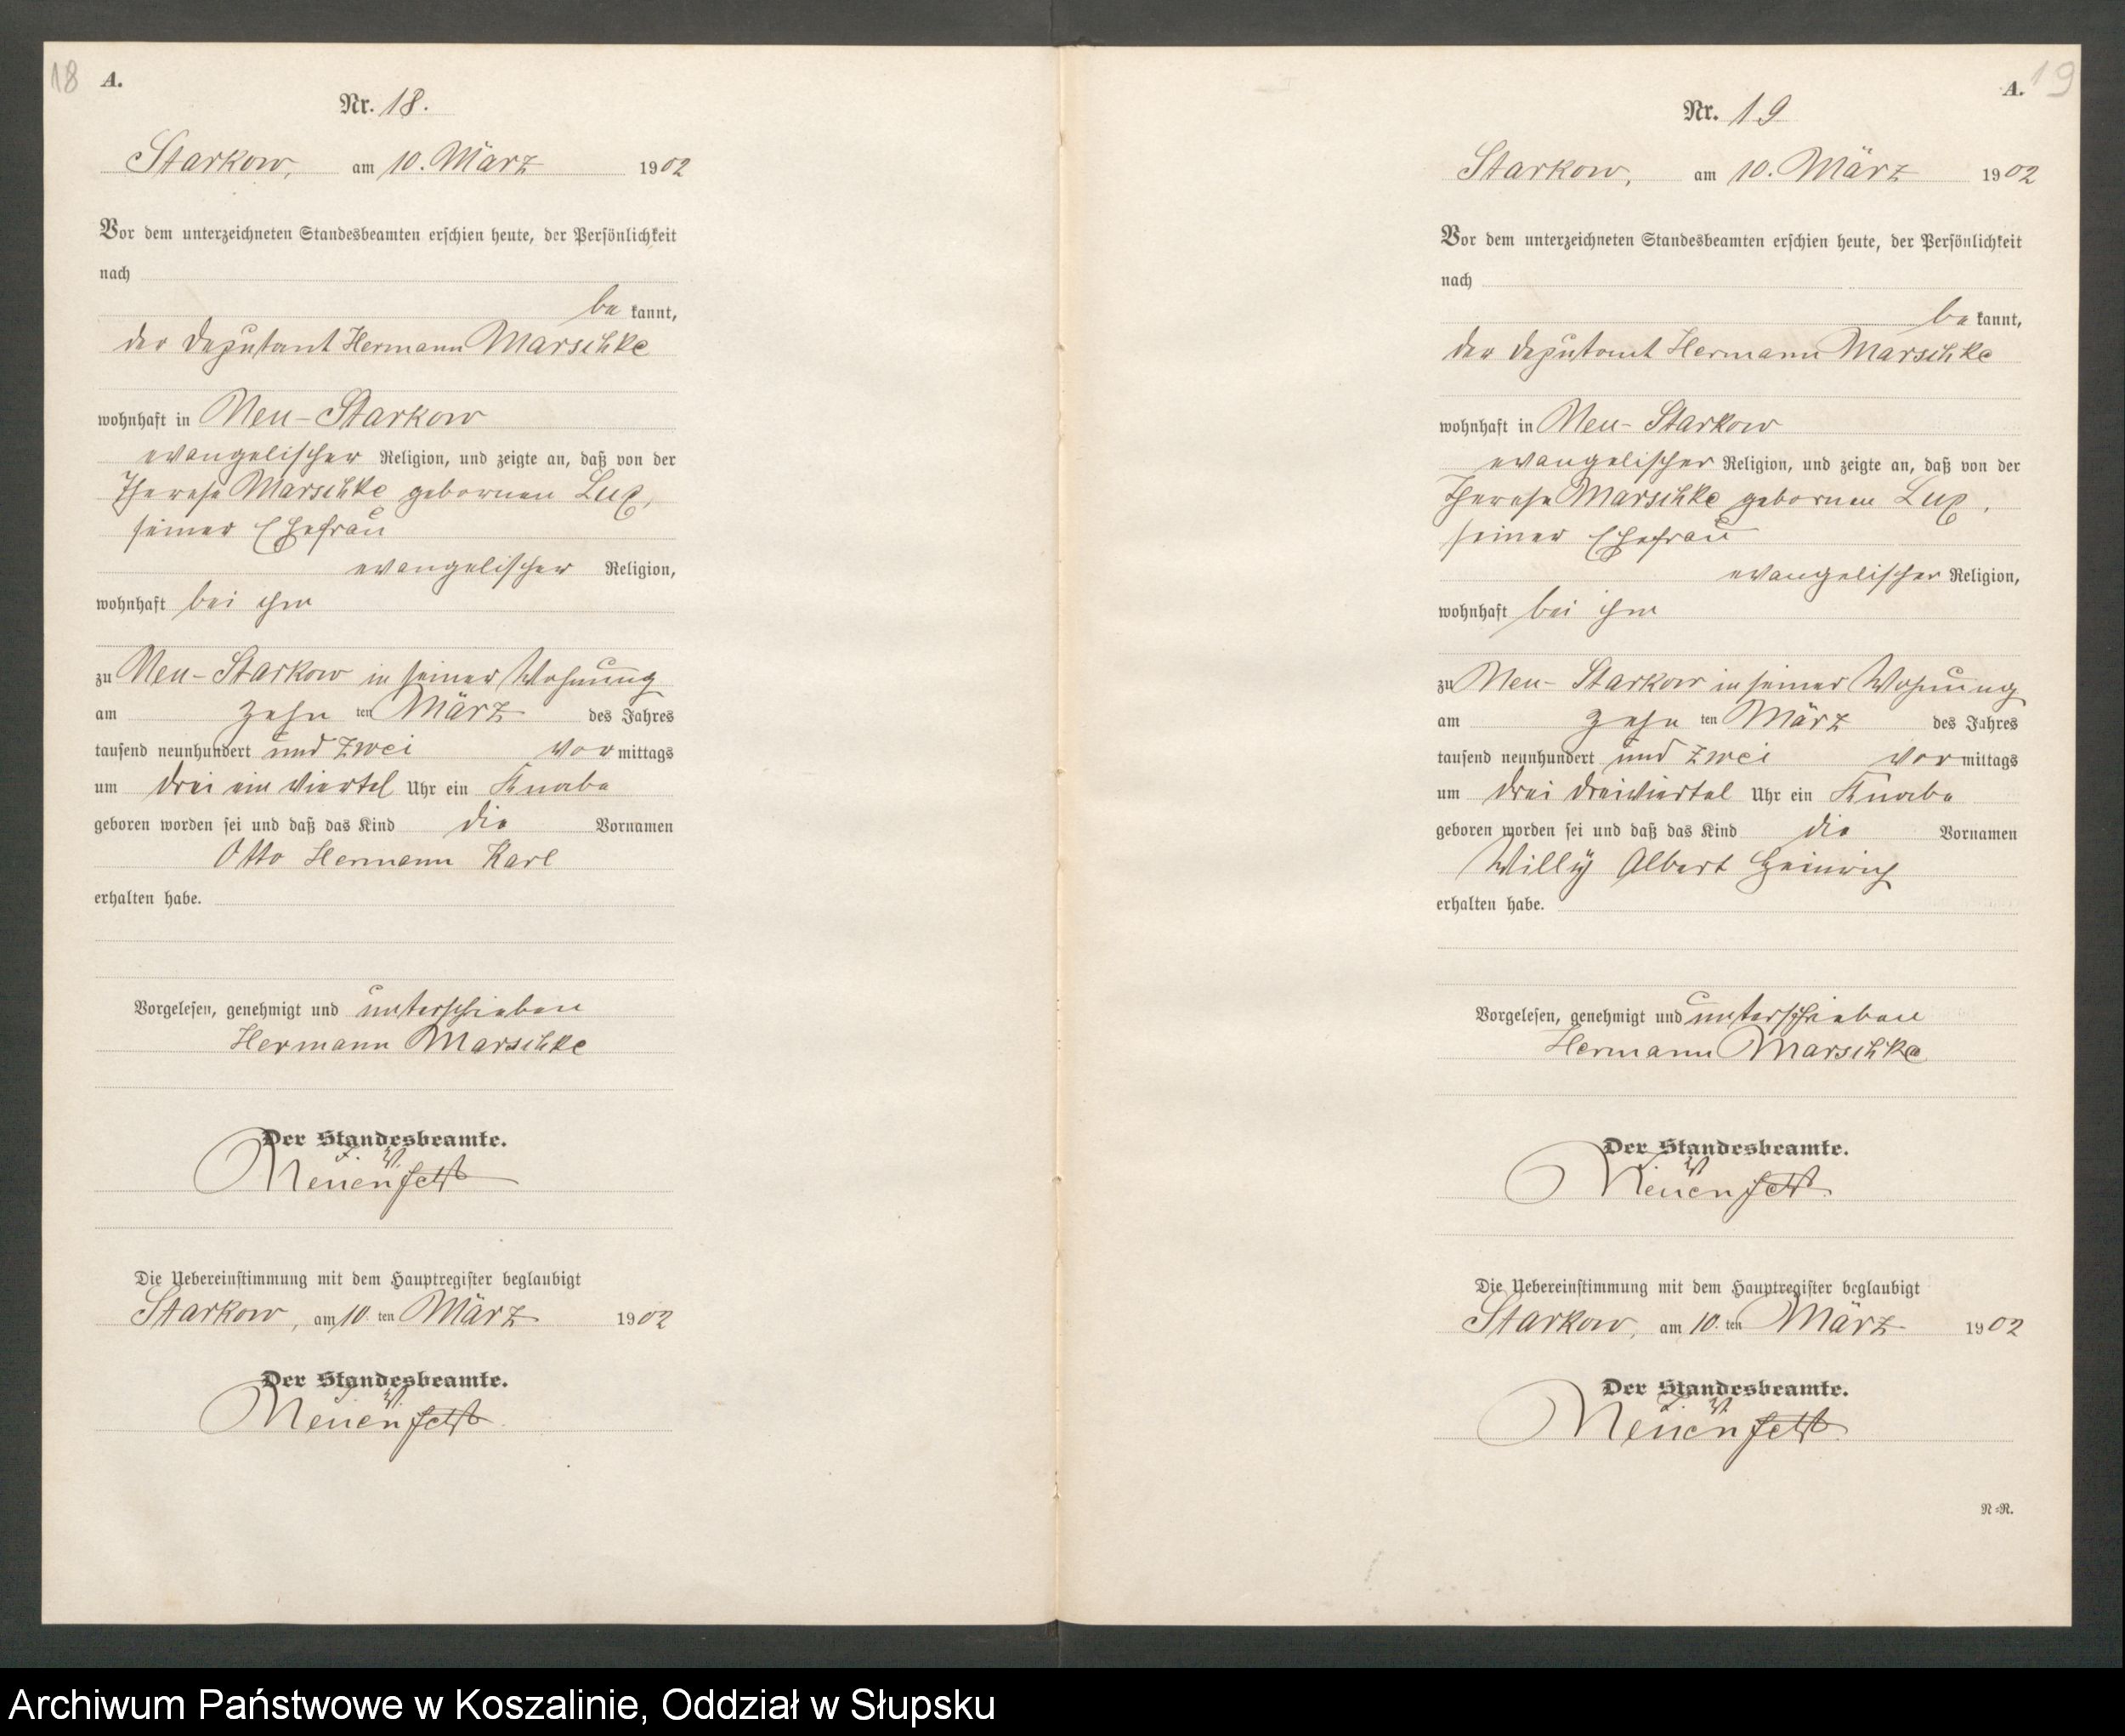 18
A.
Nr. 18.
Starkow, am 10. März 1902
Vor dem unterzeichneten Standesbeamten erschien heute, der Persönlichkeit
nach
be kannt,
der Deputant Hermann Marschke
wohnhaft in Neu-Starkow
evangelischer Religion, und zeigte an, daß von der
Therese Marschke gebornen Lux,
seiner Ehefrau
evangelischer Religion,
wohnhaft bei ihm
zu Neu-Starkow in seiner Wohnung
am zehn ten März des Jahres
tausend neunhundert und zwei vor mittags
um drei ein viertel Uhr ein Knabe
geboren worden sei und daß das Kind die Vornamen
Otto Hermann Karl
erhalten habe.
Vorgelesen, genehmigt und unterschrieben
Hermann Marschke
Der Standesbeamte.
Die Uebereinstimmung mit dem Hauptregister beglaubigt
Starkow, am 10. ten März 1902
Der Standesbeamte.
A.
19
Nr. 19
Starkow, am 10. März 1902
Vor dem unterzeichneten Standesbeamten erschien heute, der Persönlichkeit
nach
be kannt,
der Deputant Hermann Marschke
wohnhaft in Neu-Starkow
evangelischer Religion, und zeigte an, daß von der
Therese Marschke gebornen Lux,
seiner Ehefrau
evangelischer Religion,
wohnhaft bei ihm
zu Neu-Starkow in seiner Wohnung
am zehn ten März des Jahres
tausend neunhundert und zwei vor mittags
um drei dreiviertel Uhr ein Knabe
geboren worden sei und daß das Kind die Vornamen
Willy Albert Heinrich
erhalten habe.
Vorgelesen, genehmigt und unterschrieben
Hermann Marschke
Der Standesbeamte.
Die Uebereinstimmung mit dem Hauptregister beglaubigt
Starkow, am 10. ten März 1902
Der Standesbeamte.
N=R.
Archiwum Państwowe w Koszalinie, Oddział w Słupsku